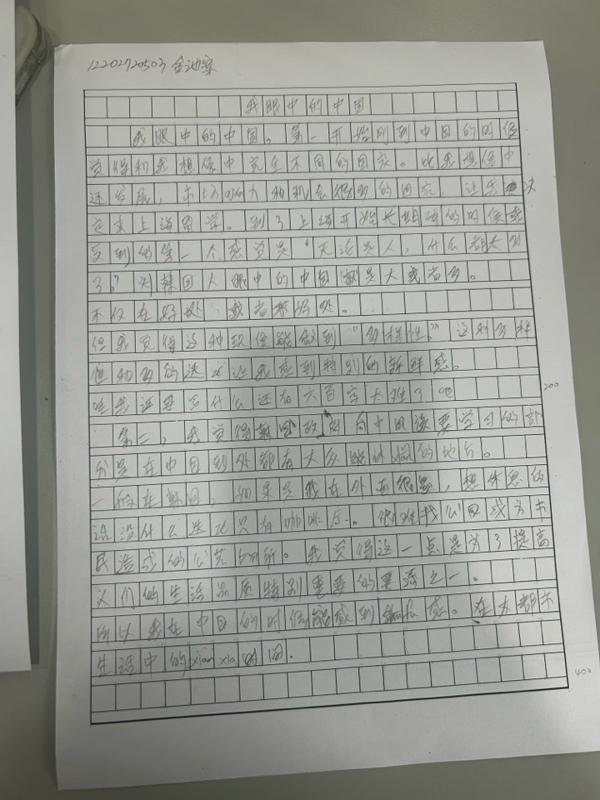 12202720503 金
我眼中的中国
我眼中的中国。第一开始刚到中国的时候
觉得和我想像中完全不同的国家。比我想像中
还发展,市场 力和机会很多的国家,让我决
定来上海留学。到了上海开始长期 的时候感
受到的第一个感觉是“无论是人,什么都太多
了”对韩国人眼中的中国就是大或者多。
不仅在好处 或者坏处。
但我觉得这种 能做到“多样性。”这种多样
性和多的选 让我感到特别的新鲜感。
哇我还要写什么还有六百字太难了吧
200
第二,我觉得韩国政府向中国该要学习的部
分是在中国到处都有大多能休闲的地方。
一般在韩国,如果是我在外面很累,想休息的
话没什么选 只有咖啡厅。很难找公园或为市
民造成的公共 所。我觉得这一点是为了提高
人们的生活品质特别重要的要素之一。
所以我在中国的时候能感到 感。在大都市
生活中的xian xia时间。
400